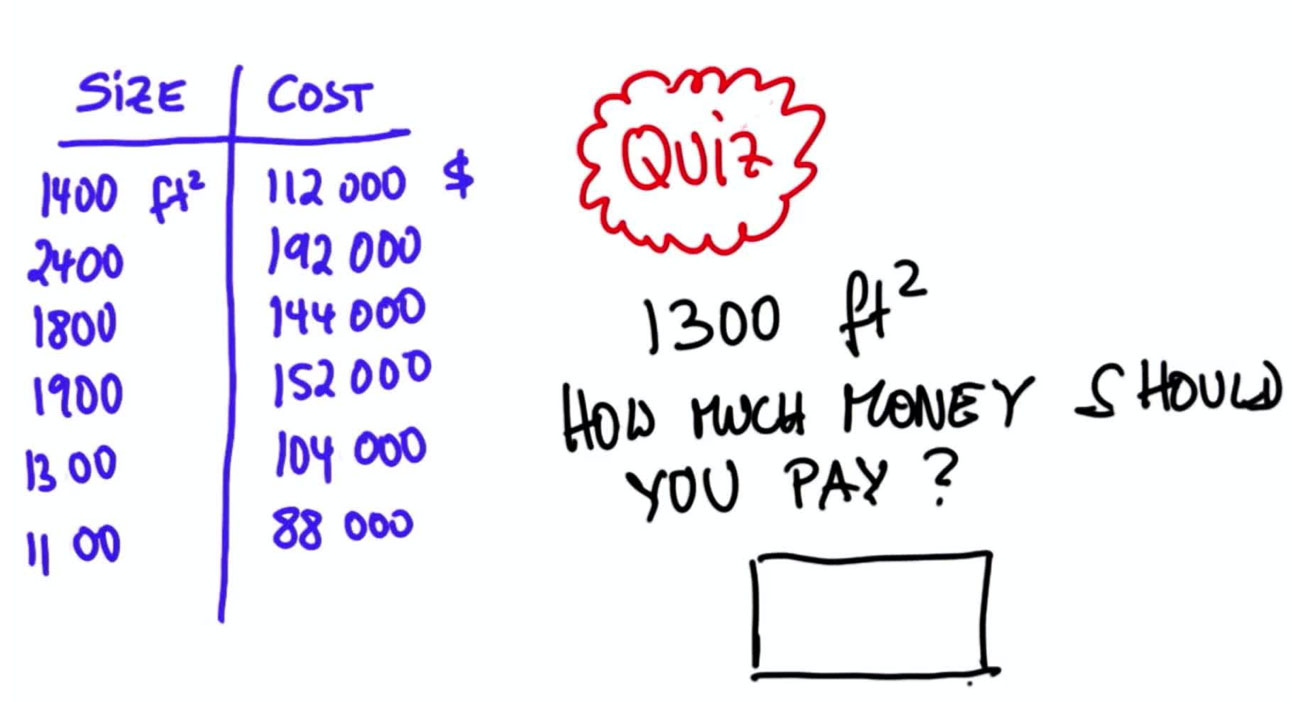 SiZE COST
1400 ft² 112 000 $
2400 192 000
1800 144 000
1900 152 000
1300 104 000
1100 88 000
QUiz
1300 ft²
HOW MUCH MONEY SHOULD
YOU PAY ?